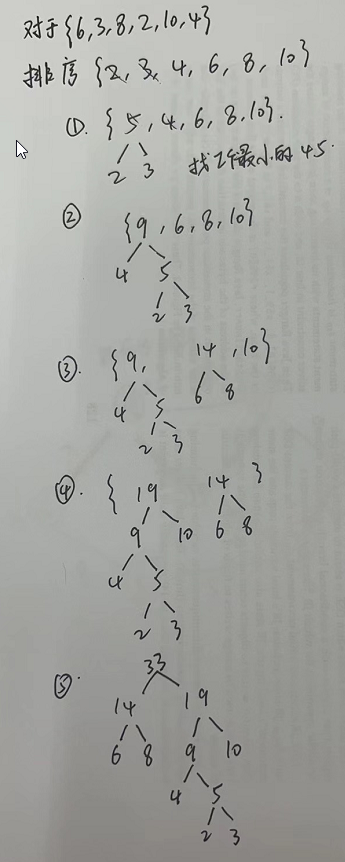 对于{6,3,8,2,10,4}
排序{2,3,4,6,8,10}
①. {5,4,6,8,10}.
2 3 找2个最小的45.
② {9,6,8,10}
4 5
2 3
③. {9, 14,10}
4 5 6 8
2 3
④. { 19 14 }
9 10 6 8
4 5
2 3
⑤. 33
14 19
6 8 9 10
4 5
2 3